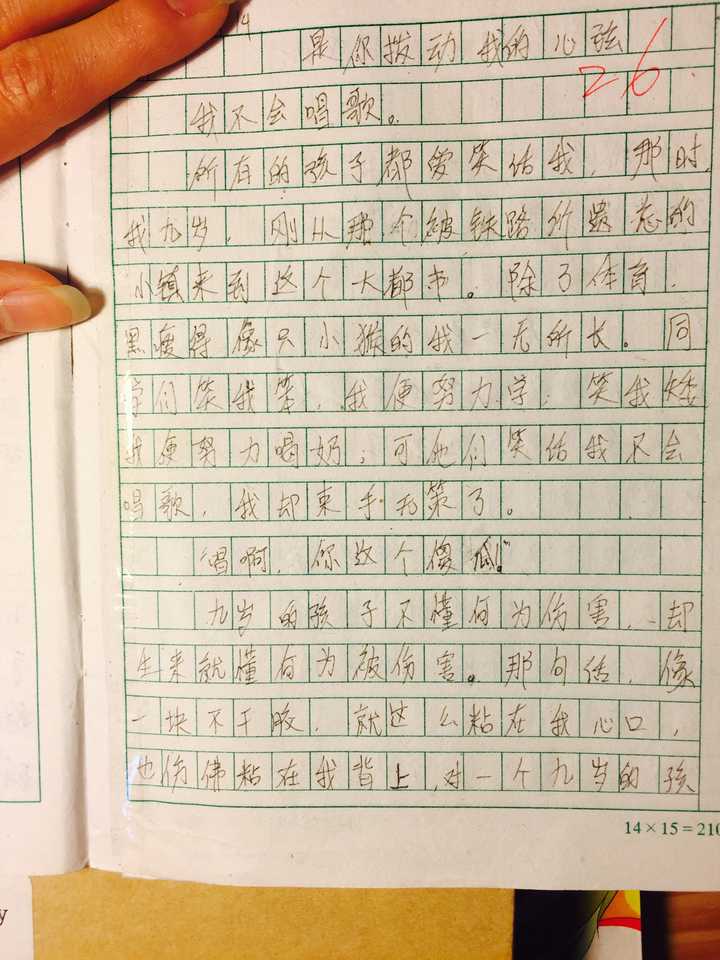 14
是你拨动我的心弦
26
我不会唱歌。
所有的孩子都爱笑话我，那时
我九岁，刚从那个被铁路所遗忘的
小镇来到这个大都市。除了体育，
黑瘦得像只小猴的我一无所长。同
学们笑我笨，我便努力学；笑我矮
我便努力喝奶；可他们笑话我不会
唱歌，我却束手无策了。
“唱啊，你这个傻瓜！”
九岁的孩子不懂何为伤害，却
生来就懂何为被伤害。那句话，像
一块不干胶，就这么粘在我心口，
也仿佛粘在我背上，对一个九岁的孩
14×15=210
y